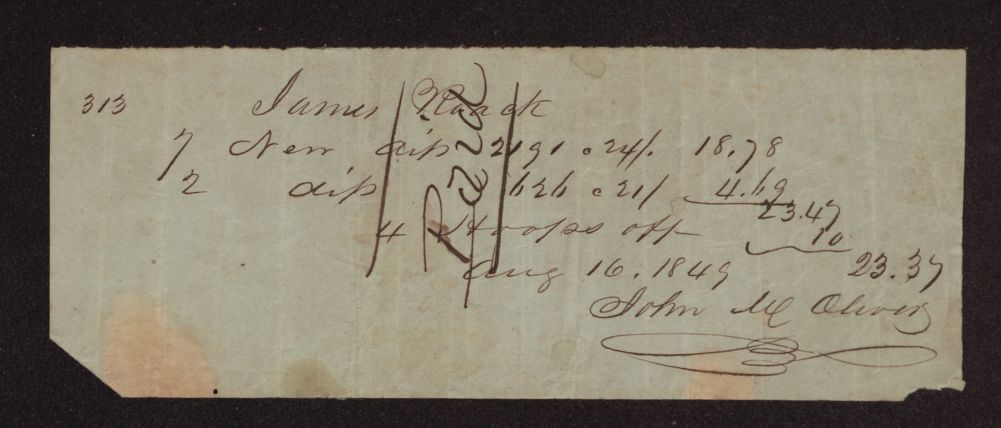 313 James Roack
7 New dip 2191 c 24/. 18.78
2 dip 626 c 21/ 4.69
23.47
4 Hoops off 10
Aug 16. 1849 23.37
John M Oliver
Paid